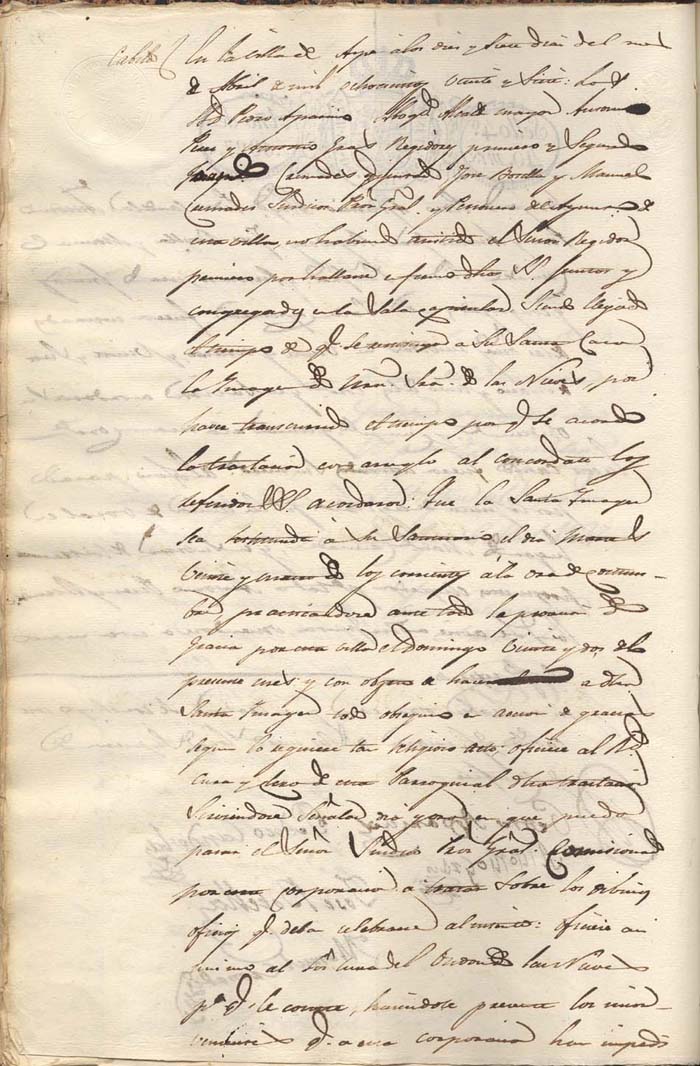 Cabildo En la villa de Aspe á los dies y siete dias del mes
de Abril de mil ochocientos veinte y siete: Los S.
D. Pedro Aparicio Abogdo Alcalde mayor Antonio
y Antonio Gras Regidores primero y Segundo
Cañizares Jose Botella y Manuel
Cañizares Sindicos Pror Gral. y Personero del Ayunto. de
esta villa, no habiendo asistido el Señor Regidor
primero por hallarse enfermo dhos SS. juntos y
congregados en la Sala capitular Siendo llegado
el tiempo de q. se restituya á Su Santa Casa
la Imagen de Ntra. Sra. de las Nieves, por
haver transcurrido el tiempo por q. se acordó
la traslacion con arreglo al concordato los
referidos SS. acordaron: Que la Santa Imagen
sea restituida á Su Santuario el dia Martes
veinte y cuatro de los corrientes á la ora de costum-
bre, practicandose ante todo la procesion de
gracias por esta villa el Domingo veinte y dos del
presente mes: y con objeto de hacer a dha
Santa Imagen todo obsequio en accion de gracias
segun lo requiere tan religioso acto: oficiese al Rdo
cura y clero de esta Parroquial dha traslacion
Sirviendose Señalar dia y ora en que pueda
pasar el Señor Sindico Pror Gral. Comisionado
por esta corporacion a tratar Sobre los divinos
oficios q. deba celebrarse al intento: oficiese asi
mismo al Sor cura del Ondon de las Nieves
pa. q. le conste, haciendole presente los incon-
venientes q. a esta corporacion han impedido